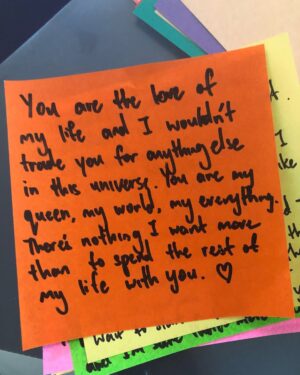 You are the love of
my life and I wouldn't
trade you for anything else
in this universe. You are my
queen, my world, my everything.
There's nothing I want more
than to spend the rest of
my life with you. ♡